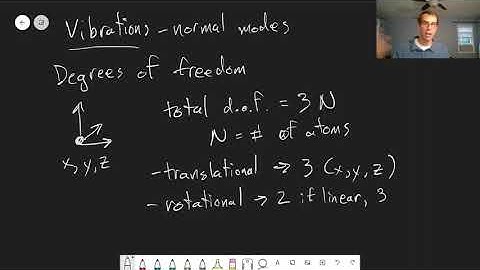 Vibrations - normal modes
Degrees of freedom
total d.o.f. = 3N
N = # of atoms
x, y, z
- translational → 3 (x, y, z)
- rotational → 2 if linear, 3